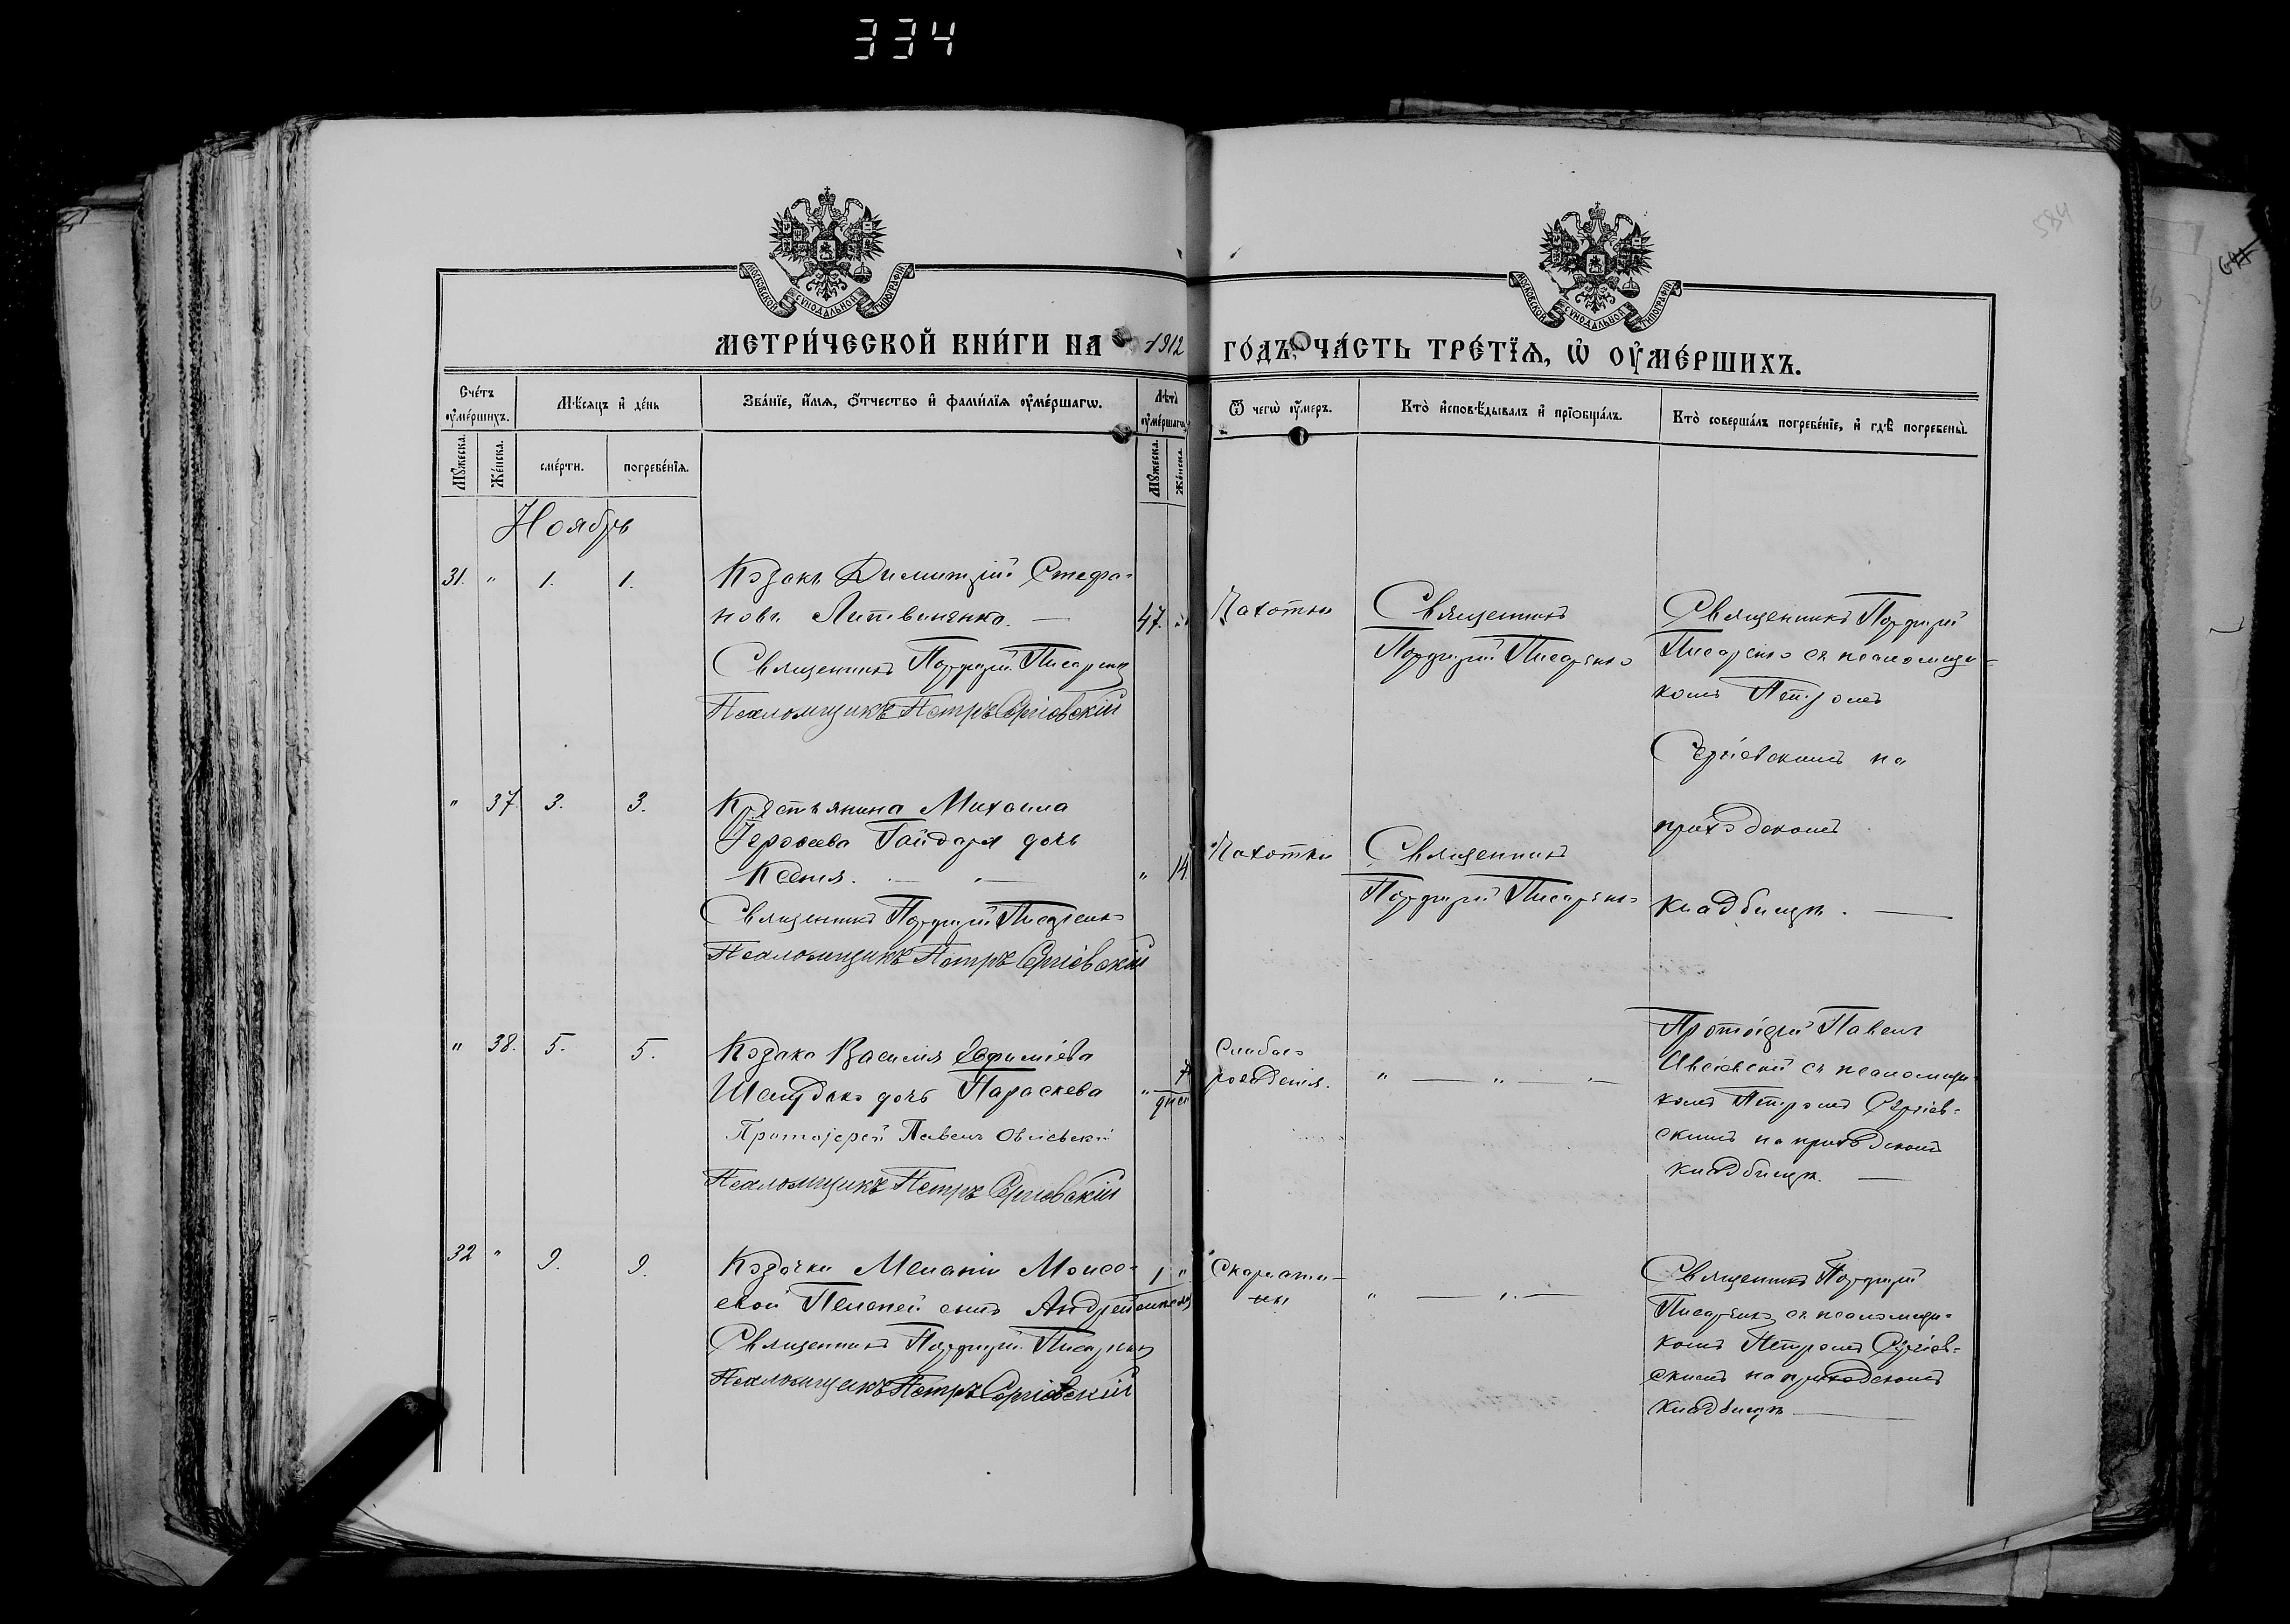 334
584
МОСКОВСКОЙ СѴНОДАЛЬНОЙ ТИПОГРАФІИ
МОСКОВСКОЙ СѴНОДАЛЬНОЙ ТИПОГРАФІИ
МЕТРИ́ЧЕСКОЙ КНИ́ГИ НА 1912 ГО́ДЪ, ЧА́СТЬ ТРЕ́ТЇѦ, Ѡ҆ ОУ҆МЕ́РШИХЪ.
Сче́тъ оу҆ме́ршихъ.
Мꙋ́жеска.
Же́нска.
Мѣ́сяцъ и҆ де́нь
сме́рти.
погребе́нїѧ.
Зва́нїе, и҆́мѧ, ѻ҆́тчество и҆ фами́лїѧ оу҆ме́ршагѡ.
Лѣ́та оу҆ме́ршагѡ
Мꙋ́жеска.
Же́нска.
Ѿ чегѡ̀ оу҆́меръ.
Кто̀ и҆сповѣ́дывалъ и҆ прїѻбща́лъ.
Кто̀ соверша́лъ погребе́нїе, и҆ гдѣ̀ погребены̀.
Ноябрь
31. " 1. 1.
Козакъ Димитрій Стефа-
новъ Литвиненко. —
Священникъ Порфирій Писаренко
Псаломщикъ Петръ Сергіевскій
47. "
Чахотки
Священникъ
Порфирій Писаренко
Священникъ Порфирій
Писаренко съ псаломщи-
комъ Петромъ
Сергіевскимъ на
приходскомъ
кладбищѣ. —
" 37. 3. 3.
Крестьянина Михаила
Гайдаря дочь
Ксенія. — " —
Священникъ Порфирій Писаренко
Псаломщикъ Петръ Сергіевскій
" 14.
Чахотки
Священникъ
Порфирій Писаренко
" 38. 5. 5.
Козака Василія Евфиміева
дочь Параскева
Протоіерей Павелъ
Псаломщикъ Петръ Сергіевскій
" 7 дней
Слабаго
рожденія.
" — " — " —
Протоіерей Павелъ
съ псаломщи-
комъ Петромъ Сергіев-
скимъ на приходскомъ
кладбищѣ. —
32 " 9. 9.
Козачки Меланіи Моисе-
евой сынъ Андрей
Священникъ Порфирій Писаренко
Псаломщикъ Петръ Сергіевскій
1 "
Скарлати-
ны
" — " —
Священникъ Порфирій
Писаренко съ псаломщи-
комъ Петромъ Сергіев-
скимъ на приходскомъ
кладбищѣ —